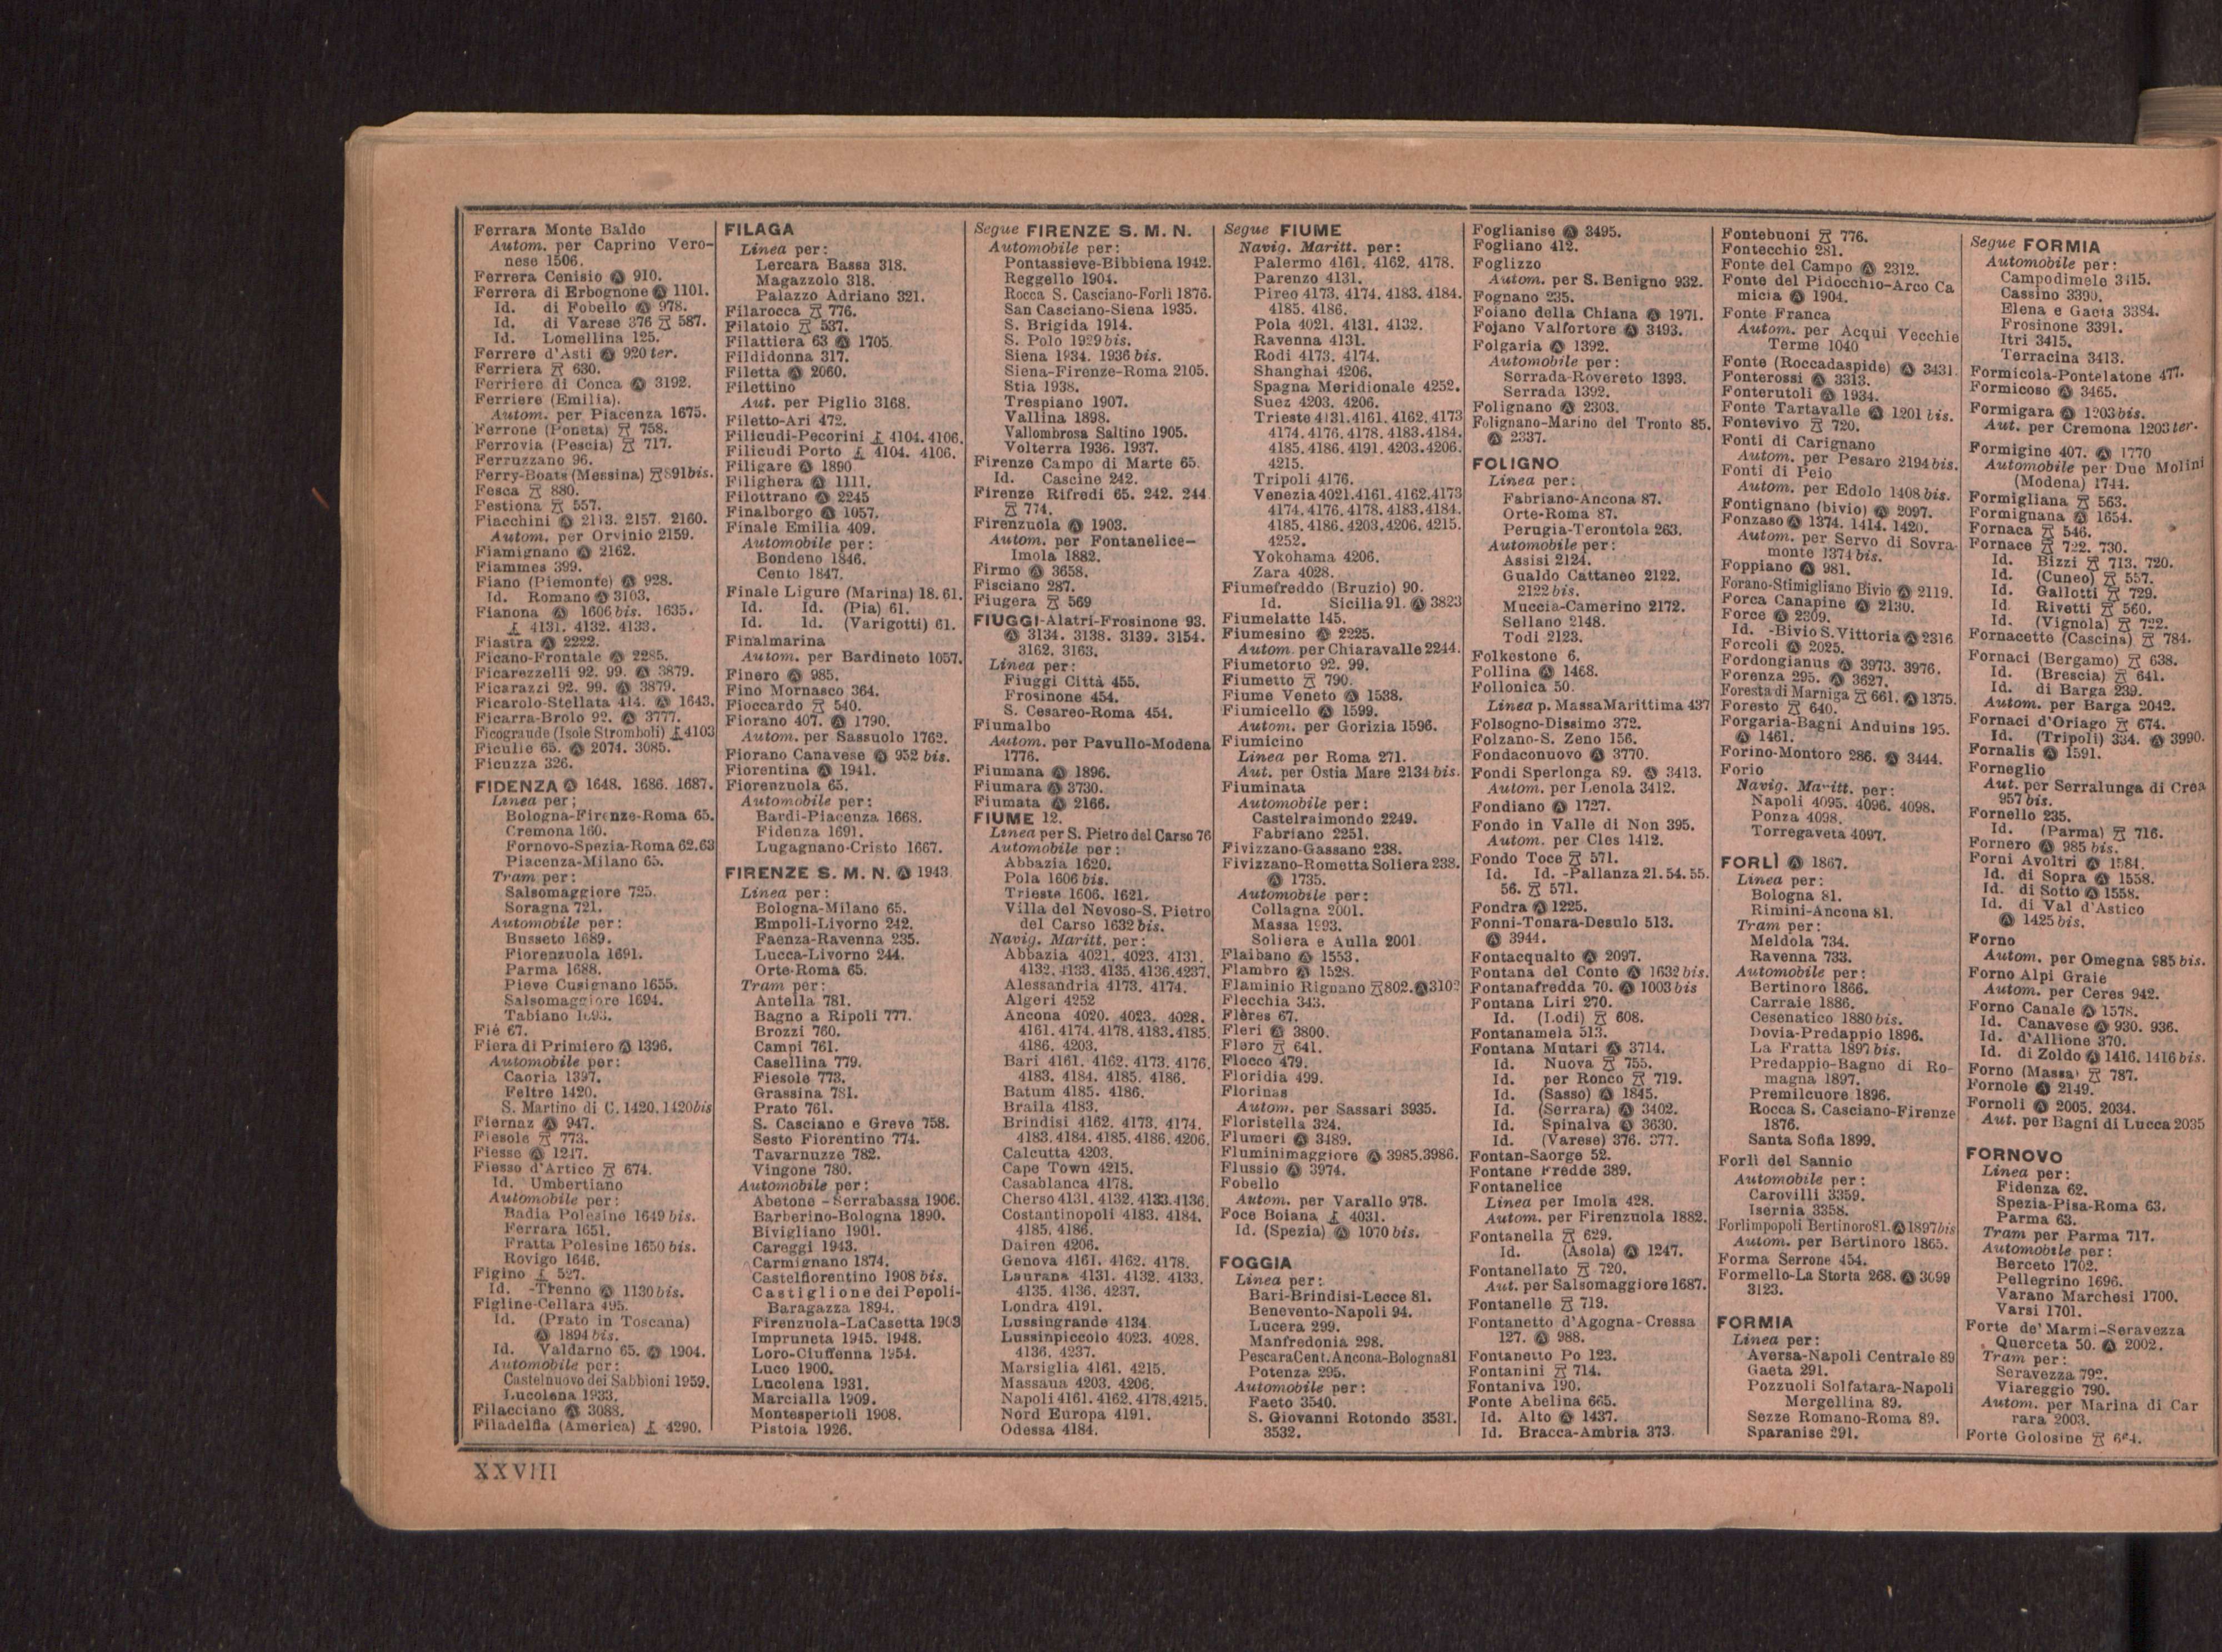 Ferrara Monte Baldo
Autom. per Caprino Vero-
nese 1506.
Ferrera Cenisio Ⓐ 910.
Ferrera di Erbognone Ⓐ 1101.
Id. di Fobello Ⓐ 978.
Id. di Varese 376 587.
Id. Lomellina 125.
Ferrere d'Asti Ⓐ 920 ter.
Ferriera 630.
Ferriere di Conca Ⓐ 3192.
Ferriere (Emilia).
Autom. per Piacenza 1675.
Ferrone (Poneta) 758.
Ferrovia (Pescia) 717.
Ferruzzano 96.
Ferry-Boats (Messina) 891bis.
Fesca 880.
Festiona 557.
Fiacchini Ⓐ 2113. 2157. 2160.
Autom. per Orvinio 2159.
Fiamignano Ⓐ 2162.
Fiammes 399.
Fiano (Piemonte) Ⓐ 928.
Id. Romano Ⓐ 3103.
Fianona Ⓐ 1606 bis. 1635.
4131. 4132. 4133.
Fiastra Ⓐ 2222.
Ficano-Frontale Ⓐ 2285.
Ficarezzelli 92. 99. Ⓐ 3879.
Ficarazzi 92. 99. Ⓐ 3879.
Ficarolo-Stellata 414. Ⓐ 1643.
Ficarra-Brolo 92. Ⓐ 3777.
Ficogrande (Isole Stromboli) 4103
Ficulle 65. Ⓐ 2074. 3085.
Ficuzza 326.
FIDENZA Ⓐ 1648. 1686. 1687.
Linea per:
Bologna-Firenze-Roma 65.
Cremona 160.
Fornovo-Spezia-Roma 62.63
Piacenza-Milano 65.
Tram per:
Salsomaggiore 725.
Soragna 721.
Automobile per:
Busseto 1689.
Fiorenzuola 1691.
Parma 1688.
Pieve Cusignano 1655.
Salsomaggiore 1694.
Tabiano 1693.
Fié 67.
Fiera di Primiero Ⓐ 1396.
Automobile per:
Caoria 1397.
Feltre 1420.
S. Martino di C. 1420. 1420bis
Fiernaz Ⓐ 947.
Fiesole 773.
Fiesse Ⓐ 1247.
Fiesso d'Artico 674.
Id. Umbertiano
Automobile per:
Badia Polesine 1649 bis.
Ferrara 1651.
Fratta Polesine 1650 bis.
Rovigo 1646.
Figino 527.
Id. -Trenno Ⓐ 1130 bis.
Figline-Cellara 495.
Id. (Prato in Toscana)
Ⓐ 1894 bis.
Id. Valdarno 65. Ⓐ 1904.
Automobile per:
Castelnuovo dei Sabbioni 1959.
Lucolena 1933.
Filacciano Ⓐ 3088.
Filadelfia (America) 4290.
FILAGA
Linea per:
Lercara Bassa 318.
Magazzolo 318.
Palazzo Adriano 321.
Filarocca 776.
Filatoio 537.
Filattiera 63 Ⓐ 1705.
Fildidonna 317.
Filetta Ⓐ 2060.
Filettino
Aut. per Piglio 3168.
Filetto-Ari 472.
Filicudi-Pecorini 4104. 4106.
Filicudi Porto 4104. 4106.
Filigare Ⓐ 1890
Filighera Ⓐ 1111.
Filottrano Ⓐ 2245
Finalborgo Ⓐ 1057.
Finale Emilia 409.
Automobile per:
Bondeno 1846.
Cento 1847.
Finale Ligure (Marina) 18. 61.
Id. Id. (Pia) 61.
Id. Id. (Varigotti) 61.
Finalmarina
Autom. per Bardineto 1057.
Finero Ⓐ 985.
Fino Mornasco 364.
Fioccardo 540.
Fiorano 407. Ⓐ 1790.
Autom. per Sassuolo 1762.
Fiorano Canavese Ⓐ 952 bis.
Fiorentina Ⓐ 1941.
Fiorenzuola 65.
Automobile per:
Bardi-Piacenza 1668.
Fidenza 1691.
Lugagnano-Cristo 1667.
FIRENZE S. M. N. Ⓐ 1943
Linea per:
Bologna-Milano 65.
Empoli-Livorno 242.
Faenza-Ravenna 235.
Lucca-Livorno 244.
Orte-Roma 65.
Tram per:
Antella 781.
Bagno a Ripoli 777.
Brozzi 760.
Campi 761.
Casellina 779.
Fiesole 773.
Grassina 781.
Prato 761.
S. Casciano e Greve 758.
Sesto Fiorentino 774.
Tavarnuzze 782.
Vingone 780.
Automobile per:
Abetone - Serrabassa 1906.
Barberino-Bologna 1890.
Bivigliano 1901.
Careggi 1943.
Carmignano 1874.
Castelfiorentino 1908 bis.
Castiglione dei Pepoli-
Baragazza 1894.
Firenzuola-LaCasetta 1903
Impruneta 1945. 1948.
Loro-Ciuffenna 1954.
Luco 1900.
Lucolena 1931.
Marcialla 1909.
Montespertoli 1908.
Pistoia 1926.
Segue FIRENZE S. M. N.
Automobile per:
Pontassieve-Bibbiena 1942.
Reggello 1904.
Rocca S. Casciano-Forlì 1876.
San Casciano-Siena 1935.
S. Brigida 1914.
S. Polo 1929 bis.
Siena 1934. 1936 bis.
Siena-Firenze-Roma 2105.
Stia 1938.
Trespiano 1907.
Vallina 1898.
Vallombrosa Saltino 1905.
Volterra 1936. 1937.
Firenze Campo di Marte 65.
Id. Cascine 242.
Firenze Rifredi 65. 242. 244
774.
Firenzuola Ⓐ 1903.
Autom. per Fontanelice-
Imola 1882.
Firmo Ⓐ 3658.
Fisciano 287.
Fiugera 569
FIUGGI-Alatri-Frosinone 93.
Ⓐ 3134. 3138. 3139. 3154.
3162. 3163.
Linea per:
Fiuggi Città 455.
Frosinone 454.
S. Cesareo-Roma 454.
Fiumalbo
Autom. per Pavullo-Modena
1776.
Fiumana Ⓐ 1896.
Fiumara Ⓐ 3730.
Fiumata Ⓐ 2166.
FIUME 12.
Linea per S. Pietro del Carso 76
Automobile per:
Abbazia 1620.
Pola 1606 bis.
Trieste 1606. 1621.
Villa del Nevoso-S. Pietro
del Carso 1632 bis.
Navig. Maritt. per:
Abbazia 4021. 4023. 4131.
4132. 4133. 4135. 4136.4237.
Alessandria 4173. 4174.
Algeri 4252
Ancona 4020. 4023. 4028.
4161. 4174. 4178. 4183.4185.
4186. 4203.
Bari 4161. 4162. 4173. 4176.
4183. 4184. 4185. 4186.
Batum 4185. 4186.
Braila 4183.
Brindisi 4162. 4173. 4174.
4183. 4184. 4185. 4186. 4206.
Calcutta 4203.
Cape Town 4215.
Casablanca 4178.
Cherso 4131. 4132. 4133.4136.
Costantinopoli 4183. 4184.
4185. 4186.
Dairen 4206.
Genova 4161. 4162. 4178.
Laurana 4131. 4132. 4133.
4135. 4136. 4237.
Londra 4191.
Lussingrande 4134.
Lussinpiccolo 4023. 4028.
4136. 4237.
Marsiglia 4161. 4215.
Massaua 4203. 4206.
Napoli 4161. 4162. 4178.4215.
Nord Europa 4191.
Odessa 4184.
Segue FIUME
Navig. Maritt. per:
Palermo 4161. 4162. 4178.
Parenzo 4131.
Pireo 4173. 4174. 4183. 4184.
4185. 4186.
Pola 4021. 4131. 4132.
Ravenna 4131.
Rodi 4173. 4174.
Shanghai 4206.
Spagna Meridionale 4252.
Suez 4203. 4206.
Trieste 4131.4161. 4162. 4173
4174. 4176. 4178. 4183.4184.
4185. 4186. 4191. 4203.4206.
4215.
Tripoli 4176.
Venezia 4021.4161. 4162.4173
4174. 4176. 4178. 4183.4184.
4185. 4186. 4203. 4206. 4215.
4252.
Yokohama 4206.
Zara 4028.
Fiumefreddo (Bruzio) 90.
Id. Sicilia 91. Ⓐ 3823
Fiumelatte 145.
Fiumesino Ⓐ 2225.
Autom. per Chiaravalle 2244.
Fiumetorto 92. 99.
Fiumetto 790.
Fiume Veneto Ⓐ 1538.
Fiumicello Ⓐ 1599.
Autom. per Gorizia 1596.
Fiumicino
Linea per Roma 271.
Aut. per Ostia Mare 2134 bis.
Fiuminata
Automobile per:
Castelraimondo 2249.
Fabriano 2251.
Fivizzano-Gassano 238.
Fivizzano-Rometta Soliera 238.
Ⓐ 1735.
Automobile per:
Collagna 2001.
Massa 1993.
Soliera e Aulla 2001
Flaibano Ⓐ 1553.
Flambro Ⓐ 1528.
Flaminio Rignano 802. Ⓐ 3102
Flecchia 343.
Flères 67.
Fleri Ⓐ 3800.
Flero 641.
Flocco 479.
Floridia 499.
Florinas
Autom. per Sassari 3935.
Floristella 324.
Flumeri Ⓐ 3489.
Fluminimaggiore Ⓐ 3985.3986.
Flussio Ⓐ 3974.
Fobello
Autom. per Varallo 978.
Foce Boiana 4031.
Id. (Spezia) Ⓐ 1070 bis.
FOGGIA
Linea per:
Bari-Brindisi-Lecce 81.
Benevento-Napoli 94.
Lucera 299.
Manfredonia 298.
Pescara Cent. Ancona-Bologna 81
Potenza 295.
Automobile per:
Faeto 3540.
S. Giovanni Rotondo 3531.
3532.
Foglianise Ⓐ 3495.
Fogliano 412.
Foglizzo
Autom. per S. Benigno 932.
Fognano 235.
Foiano della Chiana Ⓐ 1971.
Fojano Valfortore Ⓐ 3493.
Folgaria Ⓐ 1392.
Automobile per:
Serrada-Rovereto 1393.
Serrada 1392.
Folignano Ⓐ 2303.
Folignano-Marino del Tronto 85.
Ⓐ 2337.
FOLIGNO
Linea per:
Fabriano-Ancona 87.
Orte-Roma 87.
Perugia-Terontola 263.
Automobile per:
Assisi 2124.
Gualdo Cattaneo 2122.
2122 bis.
Muccia-Camerino 2172.
Sellano 2148.
Todi 2123.
Folkestone 6.
Pollina Ⓐ 1468.
Follonica 50.
Linea p. Massa Marittima 437
Folsogno-Dissimo 372.
Folzano-S. Zeno 156.
Fondaconuovo Ⓐ 3770.
Fondi Sperlonga 89. Ⓐ 3413.
Autom. per Lenola 3412.
Fondiano Ⓐ 1727.
Fondo in Valle di Non 395.
Autom. per Cles 1412.
Fondo Toce 571.
Id. Id. -Pallanza 21. 54. 55.
56. 571.
Fondra Ⓐ 1225.
Fonni-Tonara-Desulo 513.
Ⓐ 3944.
Fontacqualto Ⓐ 2097.
Fontana del Conte Ⓐ 1632 bis.
Fontanafredda 70. Ⓐ 1003 bis
Fontana Liri 270.
Id. (Lodi) 608.
Fontanamela 513.
Fontana Mutari Ⓐ 3714.
Id. Nuova 755.
Id. per Ronco 719.
Id. (Sasso) Ⓐ 1845.
Id. (Serrara) Ⓐ 3402.
Id. Spinalva Ⓐ 3630.
Id. (Varese) 376. 377.
Fontan-Saorge 52.
Fontane Fredde 389.
Fontanelice
Linea per Imola 428.
Autom. per Firenzuola 1882.
Fontanella 629.
Id. (Asola) Ⓐ 1247.
Fontanellato 720.
Aut. per Salsomaggiore 1687.
Fontanelle 719.
Fontanetto d'Agogna-Cressa
127. Ⓐ 988.
Fontanetto Po 123.
Fontanini 714.
Fontaniva 190.
Fonte Abelina 665.
Id. Alto Ⓐ 1437.
Id. Bracca-Ambria 373.
Fontebuoni 776.
Fontecchio 281.
Fonte del Campo Ⓐ 2312.
Fonte del Pidocchio-Arco Ca
micia Ⓐ 1904.
Fonte Franca
Autom. per Acqui Vecchie
Terme 1040
Fonte (Roccadaspide) Ⓐ 3431
Fonterossi Ⓐ 3313.
Fonterutoli Ⓐ 1934.
Fonte Tartavalle Ⓐ 1201 bis.
Fontevivo 720.
Fonti di Carignano
Autom. per Pesaro 2194 bis.
Fonti di Peio
Autom. per Edolo 1408 bis.
Fontignano (bivio) Ⓐ 2097.
Fonzaso Ⓐ 1374. 1414. 1420.
Autom. per Servo di Sovra
monte 1374 bis.
Foppiano Ⓐ 981.
Forano-Stimigliano Bivio Ⓐ 2119.
Forca Canapine Ⓐ 2130.
Force Ⓐ 2309.
Id. -Bivio S. Vittoria Ⓐ 2316
Forcoli Ⓐ 2025.
Fordongianus Ⓐ 3973. 3976.
Forenza 295. Ⓐ 3627.
Foresta di Marniga 661. Ⓐ 1375.
Foresto 640.
Forgaria-Bagni Anduins 195.
Ⓐ 1461.
Forino-Montoro 286. Ⓐ 3444.
Forio
Navig. Maritt. per:
Napoli 4095. 4096. 4098.
Ponza 4098.
Torregaveta 4097.
FORLÌ Ⓐ 1867.
Linea per:
Bologna 81.
Rimini-Ancona 81.
Tram per:
Meldola 734.
Ravenna 733.
Automobile per:
Bertinoro 1866.
Carraie 1886.
Cesenatico 1880 bis.
Dovia-Predappio 1896.
La Fratta 1897 bis.
Predappio-Bagno di Ro-
magna 1897.
Premilcuore 1896.
Rocca S. Casciano-Firenze
1876.
Santa Sofia 1899.
Forlì del Sannio
Automobile per:
Carovilli 3359.
Isernia 3358.
Forlimpopoli Bertinoro 81. Ⓐ 1897bis
Autom. per Bertinoro 1865.
Forma Serrone 454.
Formello-La Storta 268. Ⓐ 3099
3123.
FORMIA
Linea per:
Aversa-Napoli Centrale 89
Gaeta 291.
Pozzuoli Solfatara-Napoli
Mergellina 89.
Sezze Romano-Roma 89.
Sparanise 291.
Segue FORMIA
Automobile per:
Campodimele 3415.
Cassino 3390.
Elena e Gaeta 3384.
Frosinone 3391.
Itri 3415.
Terracina 3413.
Formicola-Pontelatone 477.
Formicoso Ⓐ 3465.
Formigara Ⓐ 1203 bis.
Aut. per Cremona 1203 ter.
Formigine 407. Ⓐ 1770
Automobile per Due Molini
(Modena) 1744.
Formigliana 563.
Formignana Ⓐ 1654.
Fornaca 546.
Fornace 722. 730.
Id. Bizzi 713. 720.
Id. (Cuneo) 557.
Id. Gallotti 729.
Id. Rivetti 560.
Id. (Vignola) 722.
Fornacette (Cascina) 784.
Fornaci (Bergamo) 638.
Id. (Brescia) 641.
Id. di Barga 239.
Autom. per Barga 2042.
Fornaci d'Oriago 674.
Id. (Tripoli) 334. Ⓐ 3990.
Fornalis Ⓐ 1591.
Forneglio
Aut. per Serralunga di Crea
957 bis.
Fornello 235.
Id. (Parma) 716.
Fornero Ⓐ 985 bis.
Forni Avoltri Ⓐ 1584.
Id. di Sopra Ⓐ 1558.
Id. di Sotto Ⓐ 1558.
Id. di Val d'Astico
Ⓐ 1425 bis.
Forno
Autom. per Omegna 985 bis.
Forno Alpi Graie
Autom. per Ceres 942.
Forno Canale Ⓐ 1578.
Id. Canavese Ⓐ 930. 936.
Id. d'Allione 370.
Id. di Zoldo Ⓐ 1416. 1416 bis.
Forno (Massa) 787.
Fornole Ⓐ 2149.
Fornoli Ⓐ 2005. 2034.
Aut. per Bagni di Lucca 2035
FORNOVO
Linea per:
Fidenza 62.
Spezia-Pisa-Roma 63.
Parma 63.
Tram per Parma 717.
Automobile per:
Berceto 1702.
Pellegrino 1696.
Varano Marchesi 1700.
Varsi 1701.
Forte de' Marmi-Seravezza
Querceta 50. Ⓐ 2002.
Tram per:
Seravezza 792.
Viareggio 790.
Autom. per Marina di Car
rara 2003.
Forte Golosine
XXVIII